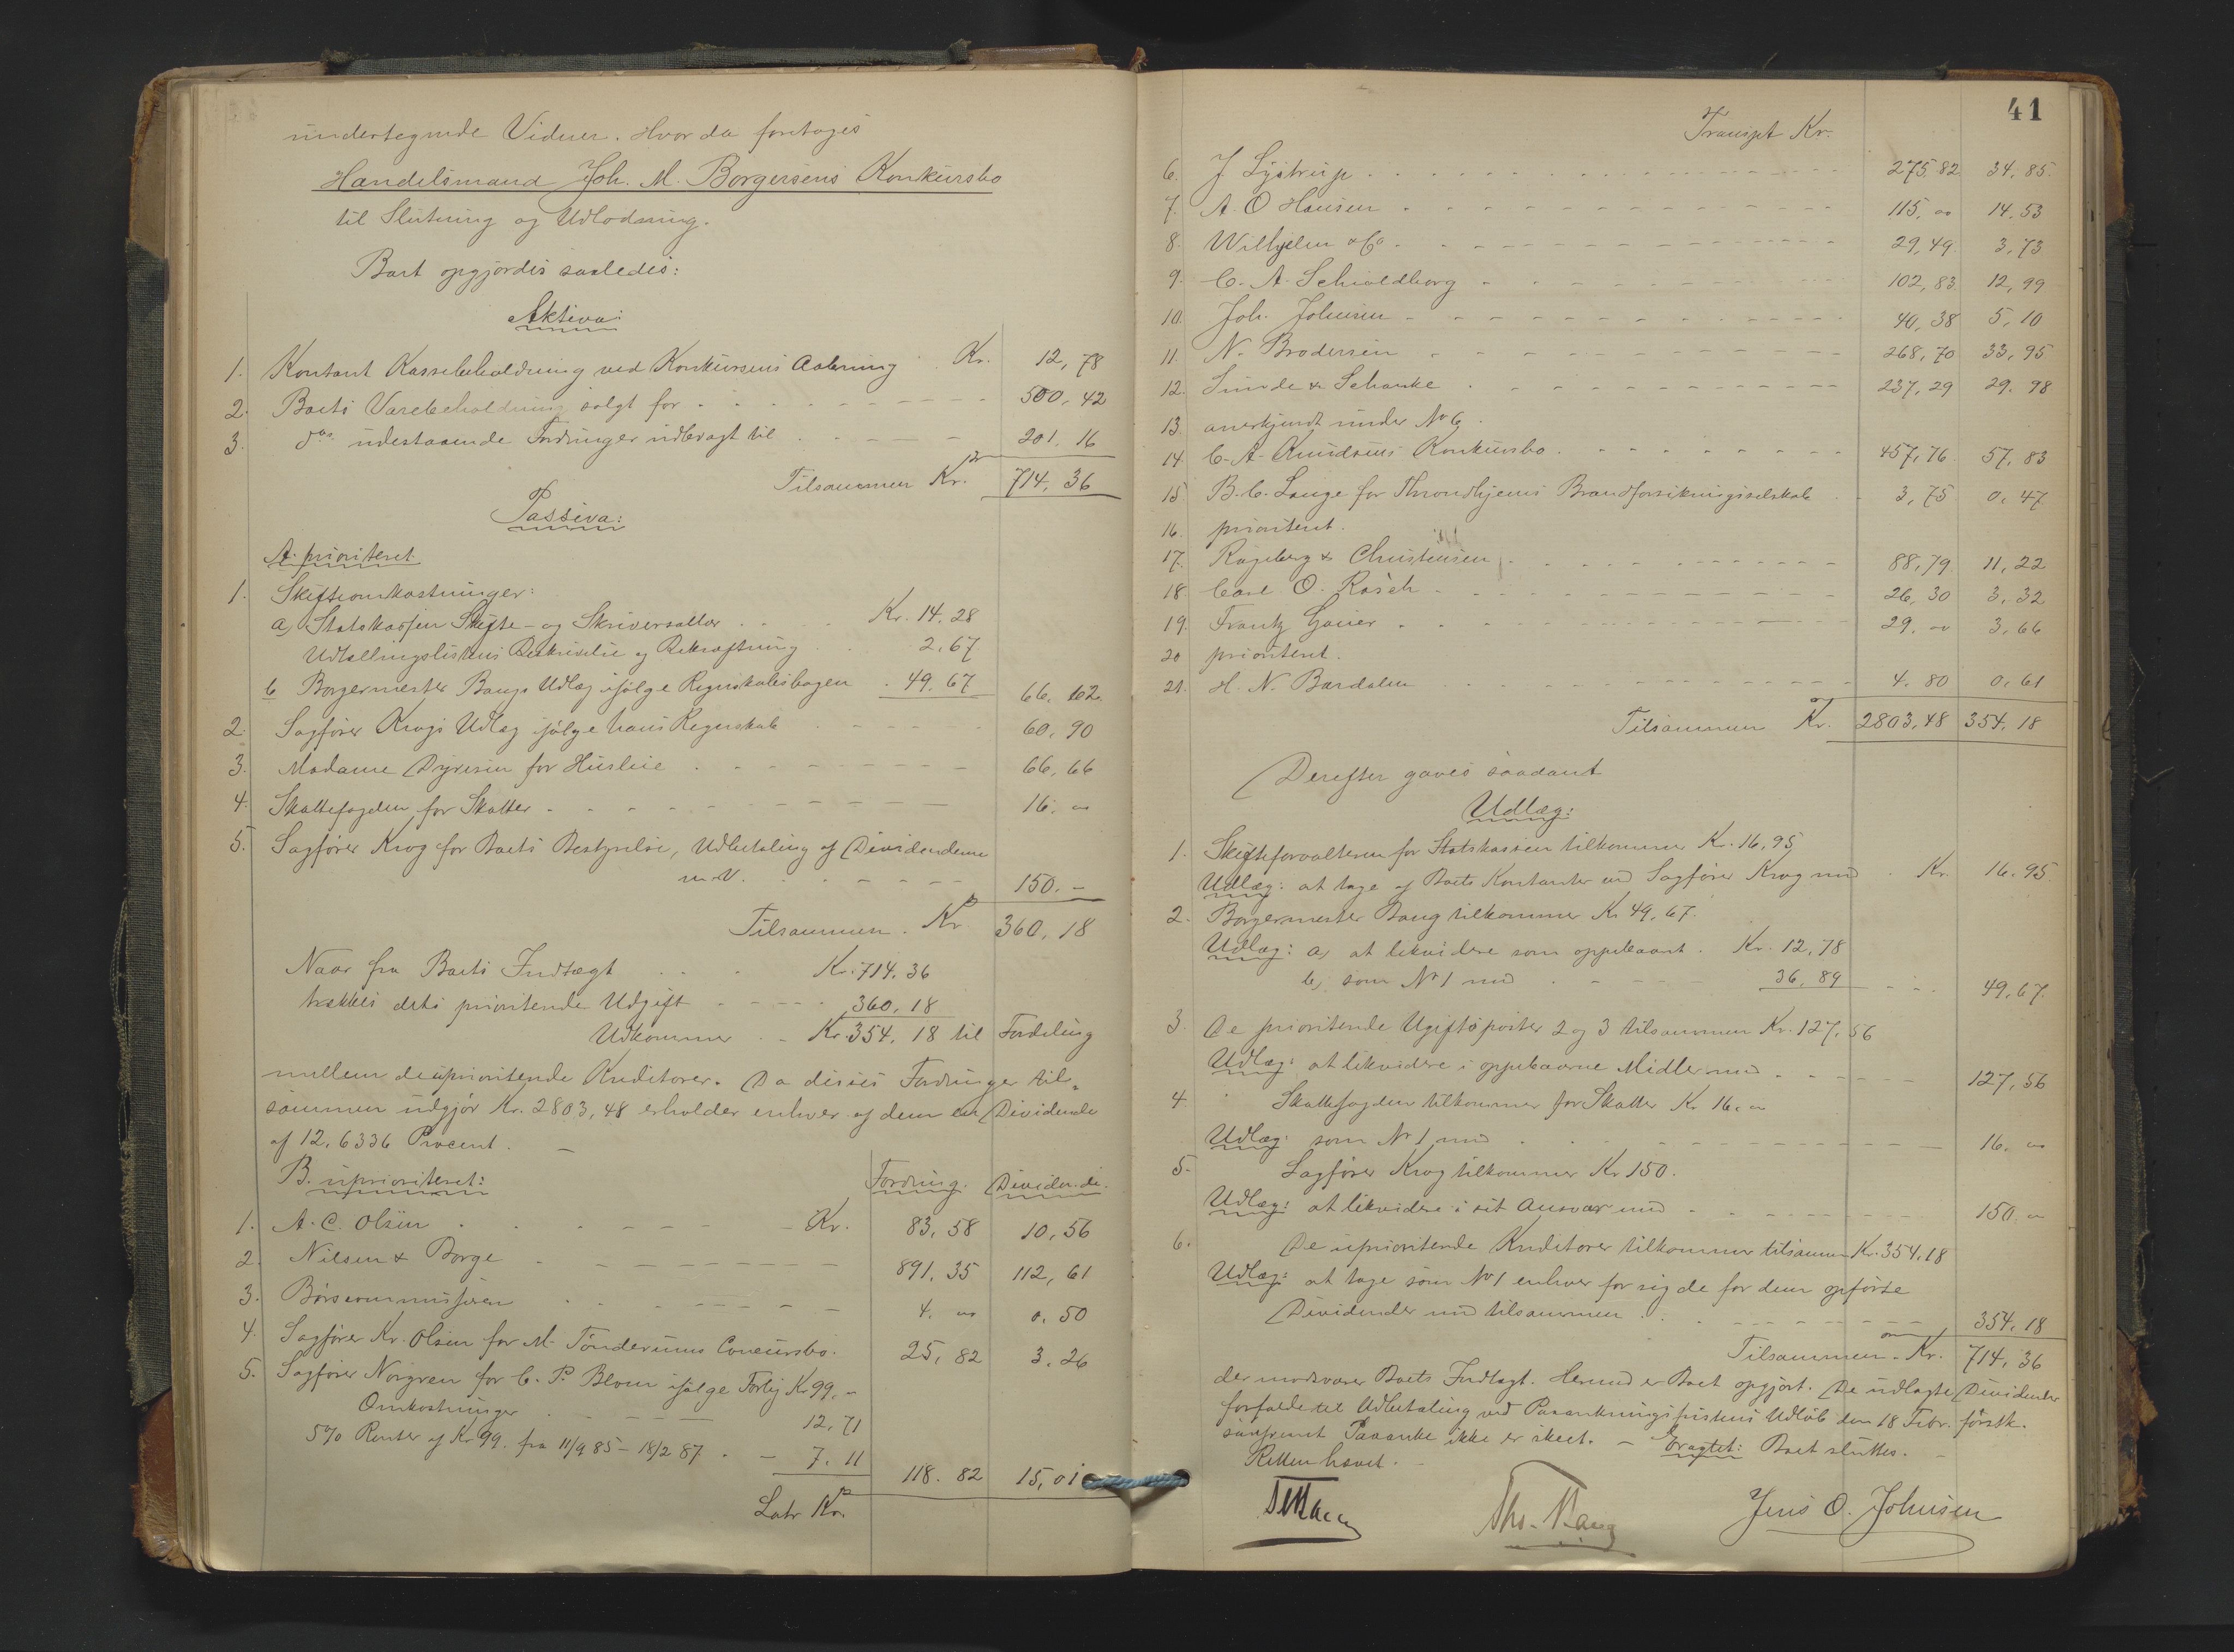 undertegnede Vidner. Hvor da foretoges
Handelsmand Joh. M. Borgersens Konkursbo
til Slutning og Udlodning.
Boet opgjordes saaledes:
Aktiva:
1. Kontant Kassebeholdning ved Konkursens Aabning Kr. 12,78
2. Boets Varebeholdning solgt for 500,42
3. do. udestaaende Fordringer indbragt til 201.16
Tilsammen Kr. 714.36
Passiva:
A. prioriteret
1. Skifteomkostninger:
a, Statskassen Skifte- og Skriversallær Kr. 14.28
Udtællingslistens Beskrivelse og Bekræftning 2,67
b Borgermester Bangs Udlæg ifølge Regnskabsbogen 49.67 66.62
2. Sagfører Krogs Udlæg ifølge hans Regnskab 60,90
3. Madame Dyresen for Husleie 66,66
4. Skattefogden for Skatter 16. "
5. Sagfører Krog for Boets Bestyrelse, Udbetaling af Dividenderne
m.V. 150.–
Tilsammen. Kr. 360,18
Naar fra Boets Indtægt Kr. 714.36
trækkes dets prioriterede Udgift 360,18
Udkommer Kr. 354.18 til Fordeling
mellem de uprioriterede Kreditorer. Da disses Fordringer til-
sammen udgjør Kr. 2803,48 erholder enhver af dem en Dividende
af 12,6336 Procent.
B. uprioriteret: Fordring. Dividende.
1. A. C. Olsen Kr. 83,58 10,56
2. Nilsen & Borge 891.35 112,61
3. Børscommissionen 4. " 0.50
4. Sagfører Kr. Olsen for M. Tønderums Concursbo. 25,82 3.26
5. Sagfører Norgren for C. P. Blom ifølge Forlig Kr 99. "
Omkostninger 12,71
5% Renter af Kr 99. fra 11/9 85 – 18/2 87 7.11 118.82 15,01
Latr Kr.
41
Transpt Kr.
6. J Lystrup 275.82 34.85.
7. A. O Hansen 115. " 14.53
8. Wilhjelm & Co 29,49 3,73
9. C. A. Schioldborg 102,83 12,99
10. Joh. Johnsen 40,38 5,10
11. N. Brodersen 268,70 33,95
12. Sunde & Schanke 237,29 29.98
13. anerkjendt under No 6.
14. C. A. Knudsens Konkursbo 457,76 57,83
15 B. C. Lange for Throndhjems Brandforsikringsselskab 3,75 0,47
16. prioriteret.
17. Rogeberg & Christensen 88,79 11,22
18 Carl O. Rosch 26,30 3,32
19. Frantz Gauer 29. " 3,66
20 prioriteret.
21. H. N. Bardalen 4.80 0,61
Tilsammen Kr. 2803,48 354.18
Derefter gaves saadant
Udlæg:
1. Skifteforvalteren for Statskassen tilkommer Kr. 16,95
Udlæg: at tage af Boets Kontanter ved Sagfører Krog med Kr. 16.95.
2. Borgermester Bang tilkommer Kr 49,67.
Udlæg: a, at likvidere som oppebaaret. Kr. 12,78
b, som No 1 med 36,89 49,67.
3. De prioriterede Ugiftsposter 2 og 3 tilsammen Kr. 127,56
Udlæg: at likvidere i oppebaarne Midler med 127,56
4. Skattefogden tilkommer for Skatter Kr 16. "
Udlæg: som No 1 med 16. "
5. Sagfører Krog tilkommer Kr 150.
Udlæg: at likvidere i sit Ansvar med 150. "
6. De uprioriterede Kreditorer tilkommer tilsammen Kr. 354,18
Udlæg: at tage som No 1 enhver for sig de for dem opførte
Dividender med tilsammen 354.18
Tilsammen. Kr. 714,36
der modsvarer Boets Indtægt. Hermed er Boet opgjort. De udlagte Dividender
forfalde til Udbetaling ved Paaankningsfristens Udløb den 18 Febr. førstk.
saafremt Paaanke ikke er skeet. – Eragtet: Boet sluttes.
Retten hævet.
Tho. Bang
Jens O. Johnsen